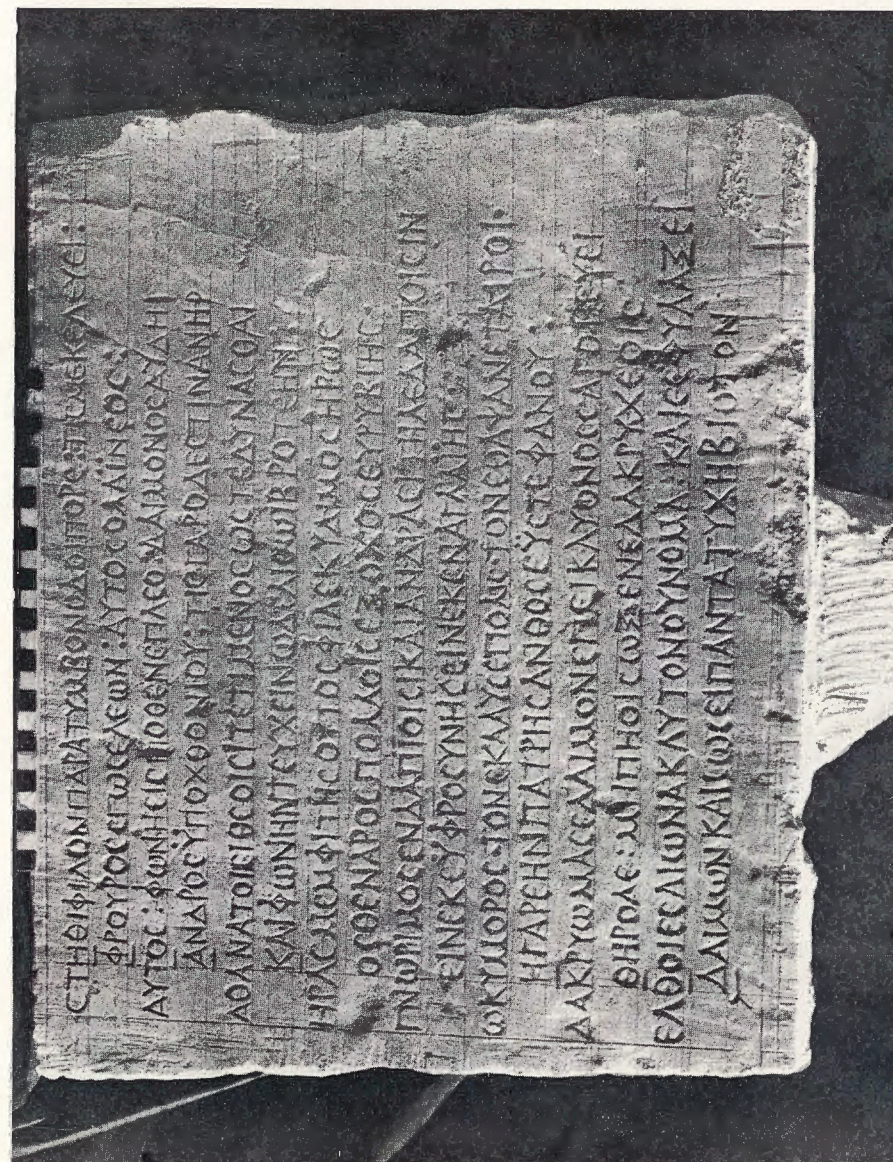 ϹΤΗΘΙΦΙΛΟΝΠΑΡΑΤΥΜΒΟΝΟΔΟΙΠΟΡΕ:ΤΙϹΜΕΚΕΛΕΥΕΙ:
ΦΡΟΥΡΟϹΕΓΩϹΕΛΕΩΝ:ΑΥΤΟϹΟΛΑΪΝΕΟϹ:
ΑΥΤΟϹ:ΦΩΝΗΕΙϹΠΟΘΕΝΕΠΛΕΟ:ΔΑΙΜΟΝΟϹΑΥΔΗΙ
ΑΝΔΡΟϹΫΠΟΧΘΟΝΙΟΥ:ΤΙϹΓΑΡΟΔΕϹΤΙΝΑΝΗΡ
ΑΘΑΝΑΤΟΙϹΙΘΕΟΙϹΙΤΕΤΙΜΕΝΟϹΩϹΤΕΔΥΝΑϹΘΑΙ
ΚΑΙΦΩΝΗΝΤΕΥΧΕΙΝΩΔΕΛΙΘΩΙΒΡΟΤΕΗΝ:
ΗΡΑϹΜΕΜΦΙΤΗϹΟΥΤΟϹΦΙΛΕΚΥΔΙΜΟϹΗΡΩϹ
ΟϹΘΕΝΑΡΟϹΠΟΛΛΟΙϹΕΞΟΧΟϹΕΥΡΥΒΙΗϹ·
ΓΝΩΡΙΜΟϹΕΝΔΑΠΙΟΙϹΙΚΑΙΑΝΔΡΑϹΙΤΗΛΕΔΑΠΟΙϹΙΝ
ΕΙΝΕΚΕΫΦΡΟϹΥΝΗϹΕΙΝΕΚΕΝΑΓΛΑΪΗϹ:
ΩΚΥΜΟΡΟϹ·ΤΟΝΕΚΛΑΥϹΕΠΟΛΙϹ·ΤΟΝΕΘΑΨΑΝΕΤΑΙΡΟΙ·
ΗΓΑΡΕΗΝΠΑΤΡΗϹΑΝΘΟϹΕΫϹΤΕΦΑΝΟΥ:
ΔΑΚΡΥΩΜΑϹΕΔΑΙΜΟΝΕΠΕΙΚΛΥΟΝΟϹϹΑΓΟΡΕΥΕΙ
ΘΗΡΟΔΕ:ΜΙΠΗΘΟΙϹΩΞΕΝΕΔΑΚΡΥΧΕΟΙϹ
ΕΛΘΟΙΕϹΑΙΩΝΑΚΛΥΤΟΝΟΥΝΟΜΑ:ΚΑΙϹΕΦΥΛΑΞΕΙ
ΔΑΙΜΩΝΚΑΙϹΩϹΕΙΠΑΝΤΑΤΥΧΗΒΙΟΤΟΝ·